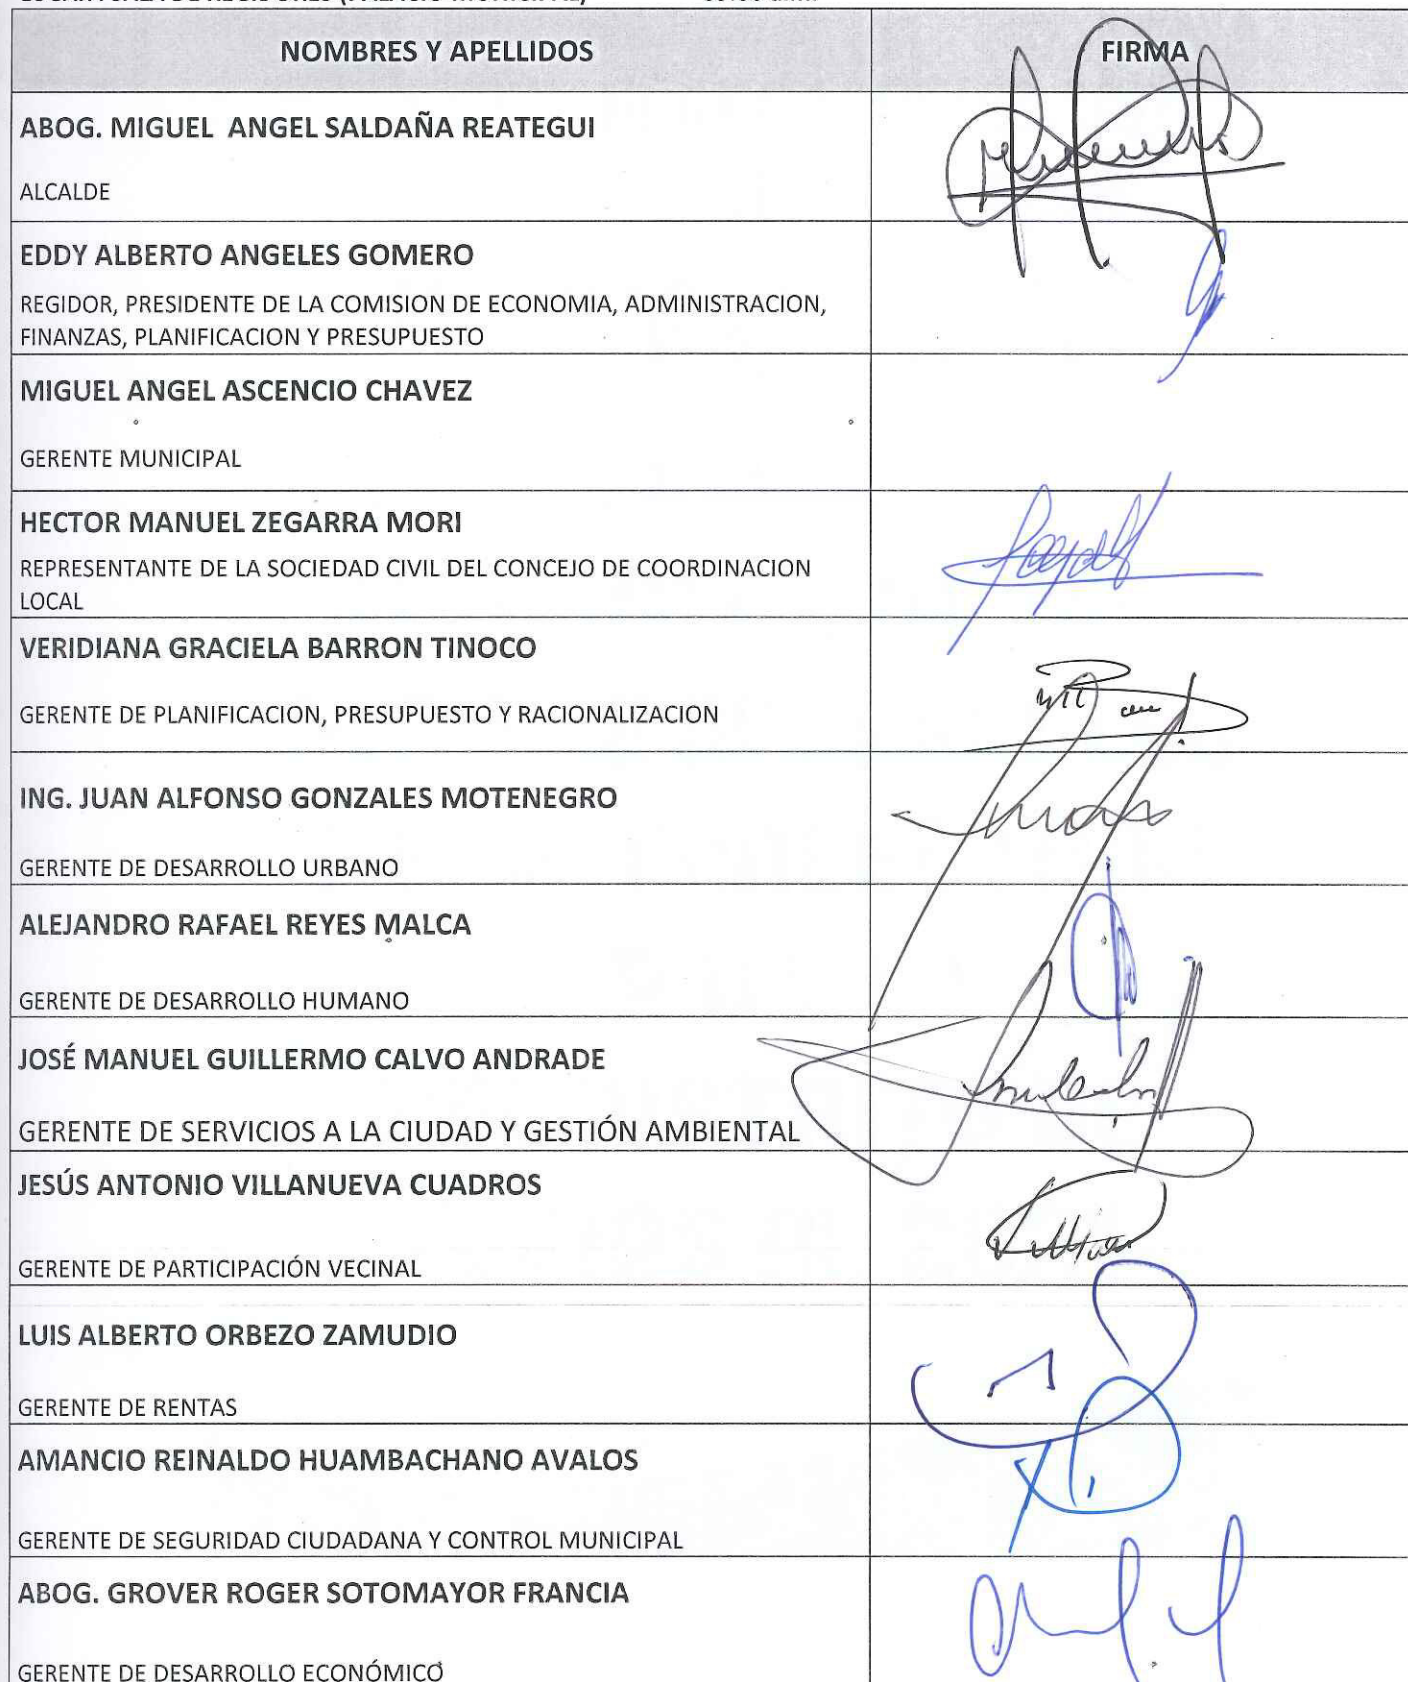 NOMBRES Y APELLIDOS FIRMA
ABOG. MIGUEL ANGEL SALDAÑA REATEGUI
ALCALDE
EDDY ALBERTO ANGELES GOMERO
REGIDOR, PRESIDENTE DE LA COMISION DE ECONOMIA, ADMINISTRACION,
FINANZAS, PLANIFICACION Y PRESUPUESTO
MIGUEL ANGEL ASCENCIO CHAVEZ
GERENTE MUNICIPAL
HECTOR MANUEL ZEGARRA MORI
REPRESENTANTE DE LA SOCIEDAD CIVIL DEL CONCEJO DE COORDINACION
LOCAL
VERIDIANA GRACIELA BARRON TINOCO
GERENTE DE PLANIFICACION, PRESUPUESTO Y RACIONALIZACION
ING. JUAN ALFONSO GONZALES MOTENEGRO
GERENTE DE DESARROLLO URBANO
ALEJANDRO RAFAEL REYES MALCA
GERENTE DE DESARROLLO HUMANO
JOSÉ MANUEL GUILLERMO CALVO ANDRADE
GERENTE DE SERVICIOS A LA CIUDAD Y GESTIÓN AMBIENTAL
JESÚS ANTONIO VILLANUEVA CUADROS
GERENTE DE PARTICIPACIÓN VECINAL
LUIS ALBERTO ORBEZO ZAMUDIO
GERENTE DE RENTAS
AMANCIO REINALDO HUAMBACHANO AVALOS
GERENTE DE SEGURIDAD CIUDADANA Y CONTROL MUNICIPAL
ABOG. GROVER ROGER SOTOMAYOR FRANCIA
GERENTE DE DESARROLLO ECONÓMICO